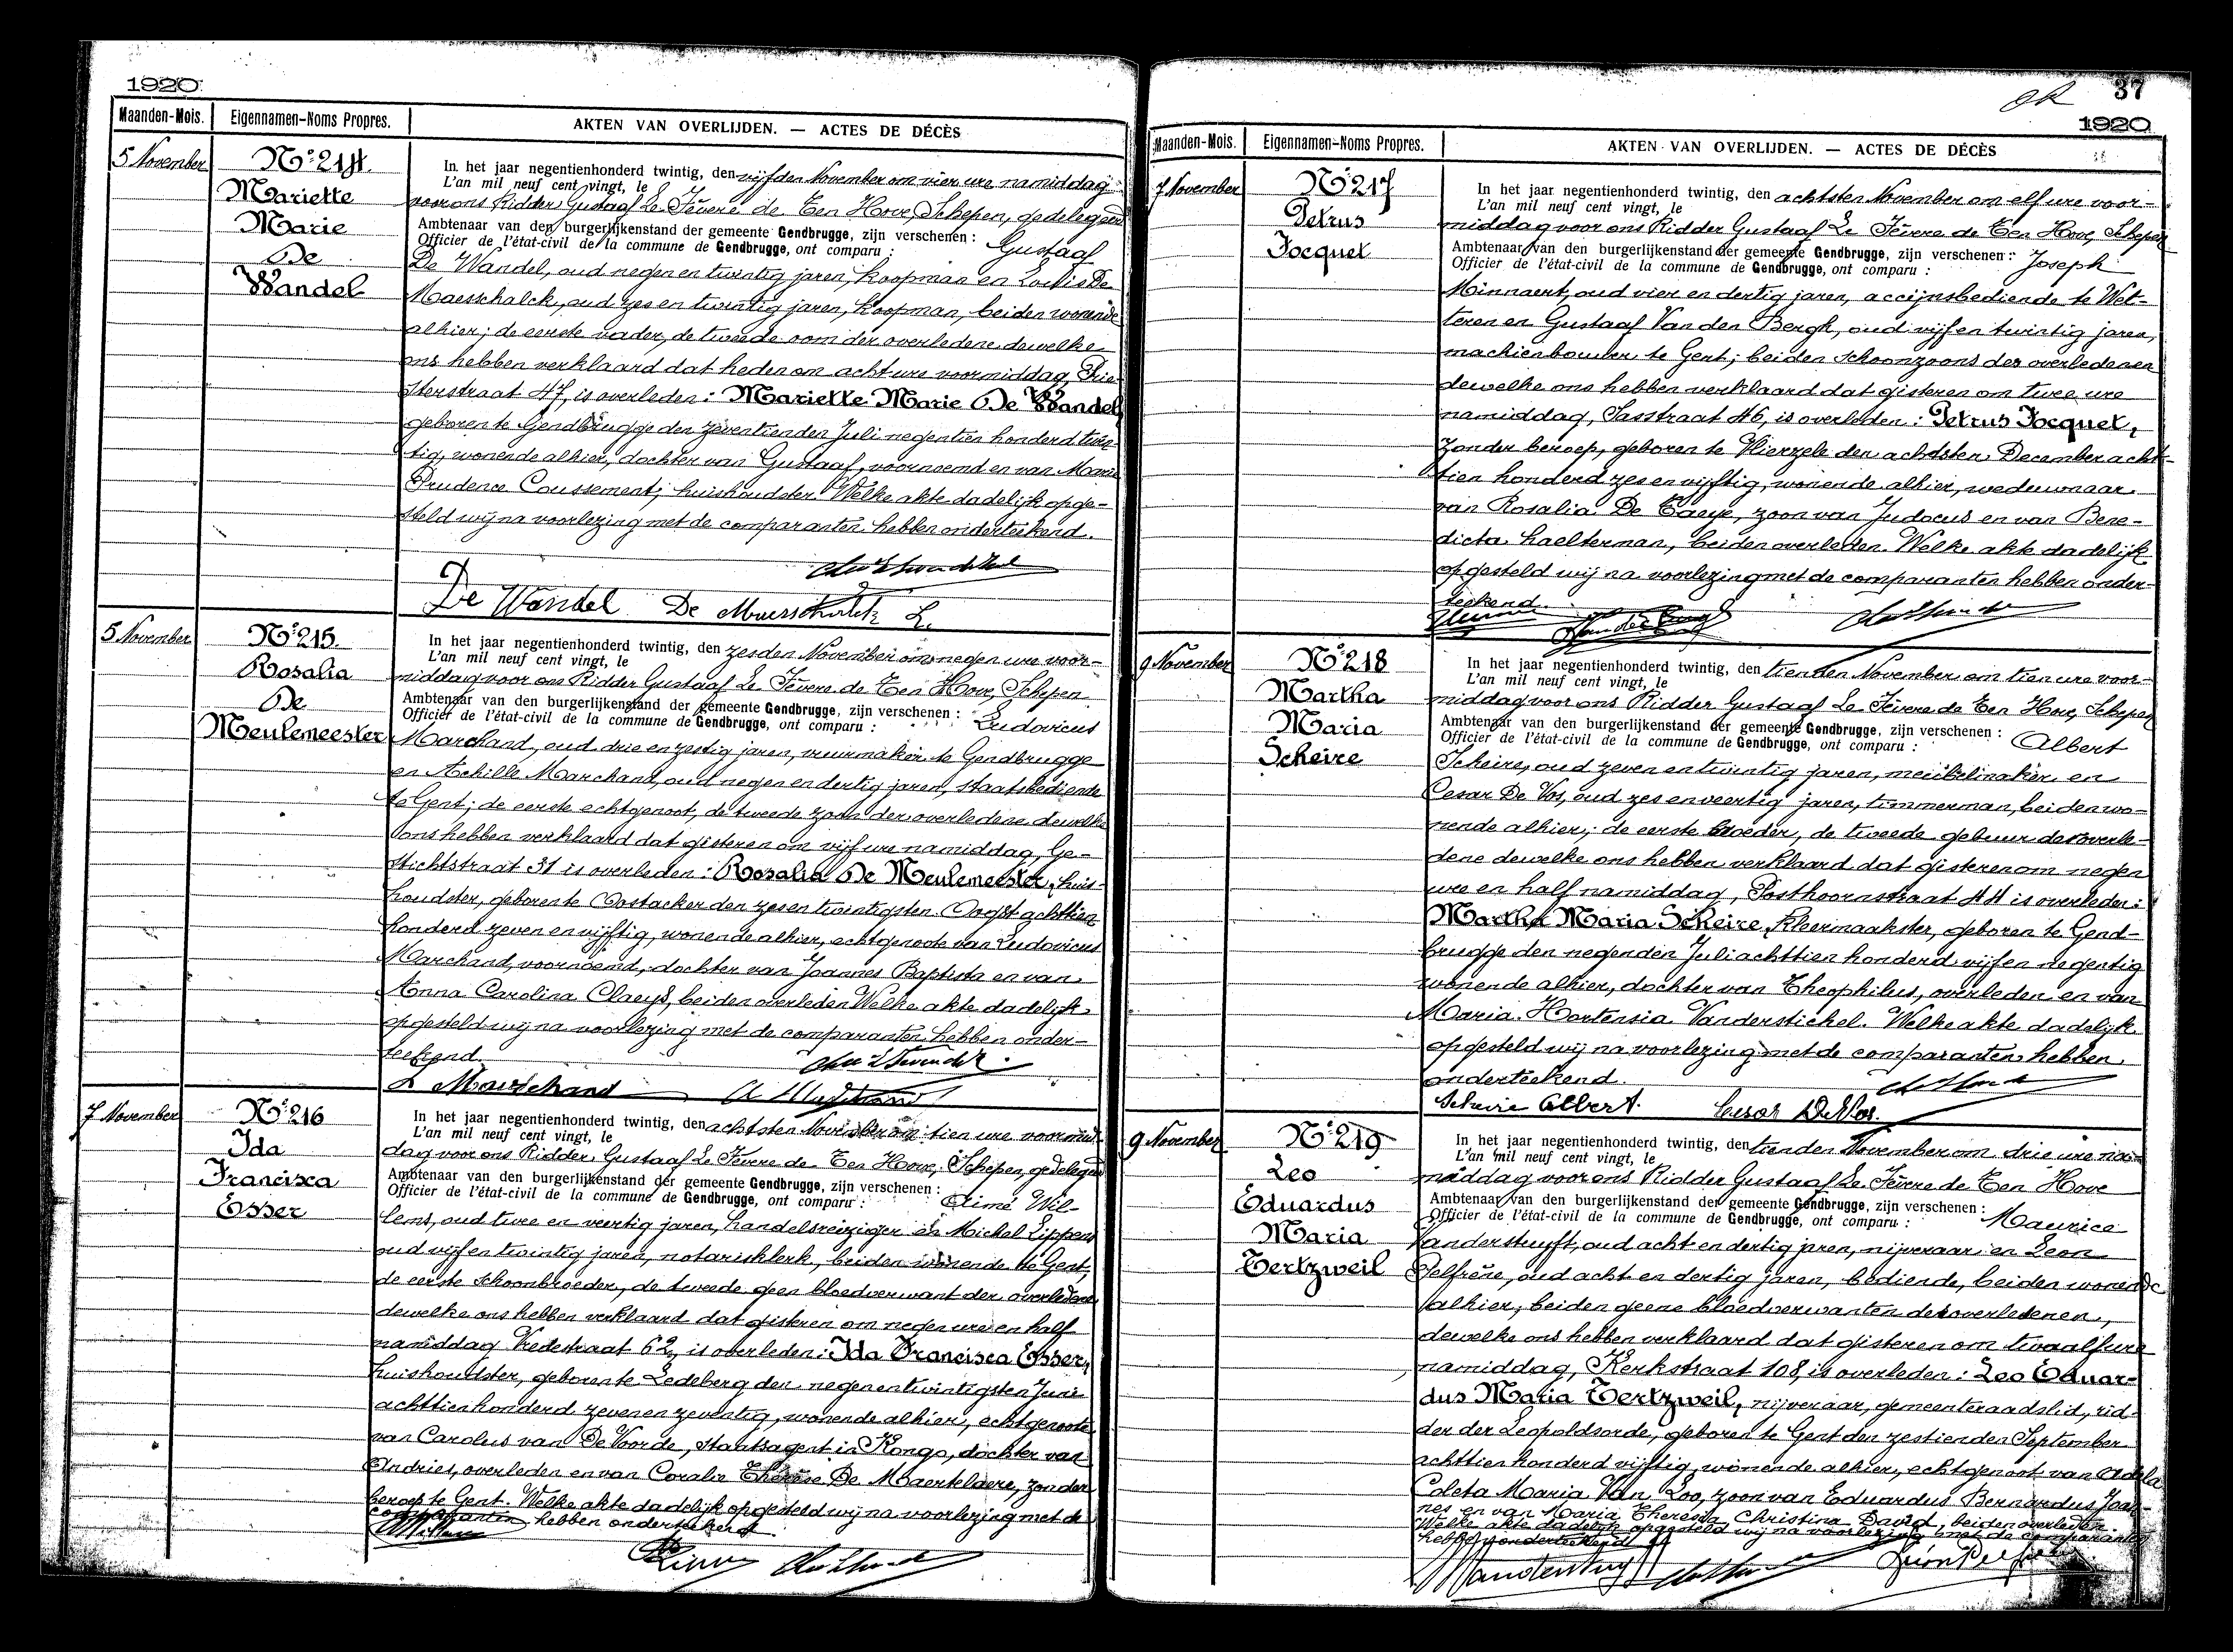 1920
Maanden-Mois. Eigennamen-Noms Propres. AKTEN VAN OVERLIJDEN. — ACTES DE DÉCÈS
5 November
No 214.
Mariette
Marie
De
Wandel
In het jaar negentienhonderd twintig, den vijfden November om vier ure namiddag
L'an mil neuf cent vingt, le
voor ons Ridder Gustaaf Le Fèvere de Ten Hove, Schepen, gedelegeerd
Ambtenaar van den burgerlijkenstand der gemeente Gendbrugge, zijn verschenen : Gustaaf
Officier de l'état-civil de la commune de Gendbrugge, ont comparu :
De Wandel, oud negen en twintig jaren, koopman en Louis De
Maesschalck, oud zes en twintig jaren, koopman, beiden wonende
alhier; de eerste vader, de tweede oom der overledene dewelke
ons hebben verklaard dat heden om acht ure voormiddag, Prie-
sterstraat 47, is overleden : Mariette Marie De Wandel
geboren te Gendbrugge den zeventienden Juli negentien honderd twin-
tig, wonende alhier, dochter van Gustaaf, voornoemd en van Marie
Prudence Coussement; huishoudster Welke akte dadelijk opge-
steld wij na voorlezing met de comparanten hebben onderteekend.
De Wandel De Maesschalck L.
5 November
No 215.
Rosalia
De
Meulemeester
In het jaar negentienhonderd twintig, den zesden November om negen ure voor-
L'an mil neuf cent vingt, le
middag voor ons Ridder Gustaaf Le Fèvere de Ten Hove, Schepen
Ambtenaar van den burgerlijkenstand der gemeente Gendbrugge, zijn verschenen : Ludovicus
Officier de l'état-civil de la commune de Gendbrugge, ont comparu :
Marchand, oud drie en zestig jaren, vuurmaker te Gendbrugge
en Achille Marchand, oud negen en dertig jaren, staatsbediende
te Gent; de eerste echtgenoot, de tweede zoon der overledene dewelke
ons hebben verklaard dat gisteren om vijf ure namiddag, Ge-
stichtstraat 31 is overleden : Rosalia De Meulemeester, huis-
houdster, geboren te Oostacker den zes en twintigsten Oogst achttien
honderd zeven en vijftig, wonende alhier, echtgenoote van Ludovicus
Marchand, voornoemd, dochter van Joannes Baptista en van
Anna Carolina Claeys, beiden overleden Welke akte dadelijk
opgesteld wij na voorlezing met de comparanten hebben onder-
teekend.
L Marchand A Marchand
7 November
No 216
Ida
Francisca
Esser
In het jaar negentienhonderd twintig, den achtsten November om tien ure voormid-
L'an mil neuf cent vingt, le
dag voor ons Ridder Gustaaf Le Fèvere de Ten Hove, Schepen, gedelegeerd
Ambtenaar van den burgerlijkenstand der gemeente Gendbrugge, zijn verschenen :
Officier de l'état-civil de la commune de Gendbrugge, ont comparu : Aimé Wil-
lems, oud twee en veertig jaren, handelsreiziger en Michel Lippens
oud vijf en twintig jaren, notarisklerk, beiden wonende te Gent,
de eerste schoonbroeder, de tweede geen bloedverwant der overledene
dewelke ons hebben verklaard dat gisteren om negen ure en half
namiddag Vredestraat 62, is overleden : Ida Francisca Esser,
huishoudster, geboren te Ledeberg den negen en twintigsten Juni
achttien honderd zeven en zeventig, wonende alhier, echtgenoote
van Carolus van De Voorde, staatsagent in Kongo, dochter van
Andries, overleden en van Coralie Thérèse De Maertelaere, zonder
beroep te Gent. Welke akte dadelijk opgesteld wij na voorlezing met de
comparanten hebben onderteekend
OK 37
1920
Maanden-Mois. Eigennamen-Noms Propres. AKTEN VAN OVERLIJDEN. — ACTES DE DÉCÈS
7 November
No 217
Petrus
Focquet
In het jaar negentienhonderd twintig, den achtsten November om elf ure voor-
L'an mil neuf cent vingt, le
middag voor ons Ridder Gustaaf Le Fèvere de Ten Hove, Schepen
Ambtenaar van den burgerlijkenstand der gemeente Gendbrugge, zijn verschenen : Joseph
Officier de l'état-civil de la commune de Gendbrugge, ont comparu :
Minnaert, oud vier en dertig jaren, accijnsbediende te Wet-
teren en Gustaaf Van den Bergh, oud vijf en twintig jaren,
machienbouwer te Gent; beiden schoonzoons des overledenen
dewelke ons hebben verklaard dat gisteren om twee ure
namiddag, Sasstraat 46, is overleden : Petrus Focquet,
zonder beroep, geboren te Vlierzele den achtsten December acht-
tien honderd zes en vijftig, wonende alhier, weduwnaar
van Rosalia De Taeye, zoon van Judocus en van Bene-
dicta haelterman, beiden overleden. Welke akte dadelijk
opgesteld wij na voorlezing met de comparanten hebben onder-
teekend.
9 November
No 218
Martha
Maria
Scheire
In het jaar negentienhonderd twintig, den tienden November om tien ure voor-
L'an mil neuf cent vingt, le
middag voor ons Ridder Gustaaf Le Fèvere de Ten Hove, Schepen
Ambtenaar van den burgerlijkenstand der gemeente Gendbrugge, zijn verschenen :
Officier de l'état-civil de la commune de Gendbrugge, ont comparu : Albert
Scheire, oud zeven en twintig jaren, meubelmaker en
Cesar De Vos, oud zes en veertig jaren, timmerman, beiden wo-
nende alhier; de eerste broeder, de tweede gebuur der overle-
dene dewelke ons hebben verklaard dat gisteren om negen
ure en half namiddag, Posthoornstraat 44 is overleden :
Martha Maria Scheire, kleermaakster, geboren te Gend-
brugge den negenden Juli achttien honderd vijf en negentig
wonende alhier, dochter van Theophilus, overleden en van
Maria Hortensia Vanderstichel. Welke akte dadelijk
opgesteld wij na voorlezing met de comparanten hebben
onderteekend.
Scheire Albert. Cesar De Vos.
9 November
No 219
Leo
Eduardus
Maria
Tertzweil
In het jaar negentienhonderd twintig, den tienden November om drie ure na-
L'an mil neuf cent vingt, le
middag voor ons Ridder Gustaaf Le Fèvere de Ten Hove
Ambtenaar van den burgerlijkenstand der gemeente Gendbrugge, zijn verschenen :
Officier de l'état-civil de la commune de Gendbrugge, ont comparu : Maurice
Vanderstuyft, oud acht en dertig jaren, nijveraar en Leon
Pelfrène, oud acht en dertig jaren, bediende, beiden wonende
alhier, beiden geene bloedverwanten des overledenen,
dewelke ons hebben verklaard dat gisteren om twaalf ure
namiddag, Kerkstraat 108, is overleden : Leo Eduar-
dus Maria Tertzweil, nijveraar, gemeenteraadslid, rid-
der der Leopoldsorde, geboren te Gent den zestienden September
achttien honderd vijftig, wonende alhier, echtgenoot van Adela
Coleta Maria Van Loo, zoon van Eduardus Bernardus Joan-
nes en van Maria Theresia Christina David, beiden overleden.
Welke akte dadelijk opgesteld wij na voorlezing met de comparanten
hebben onderteekend